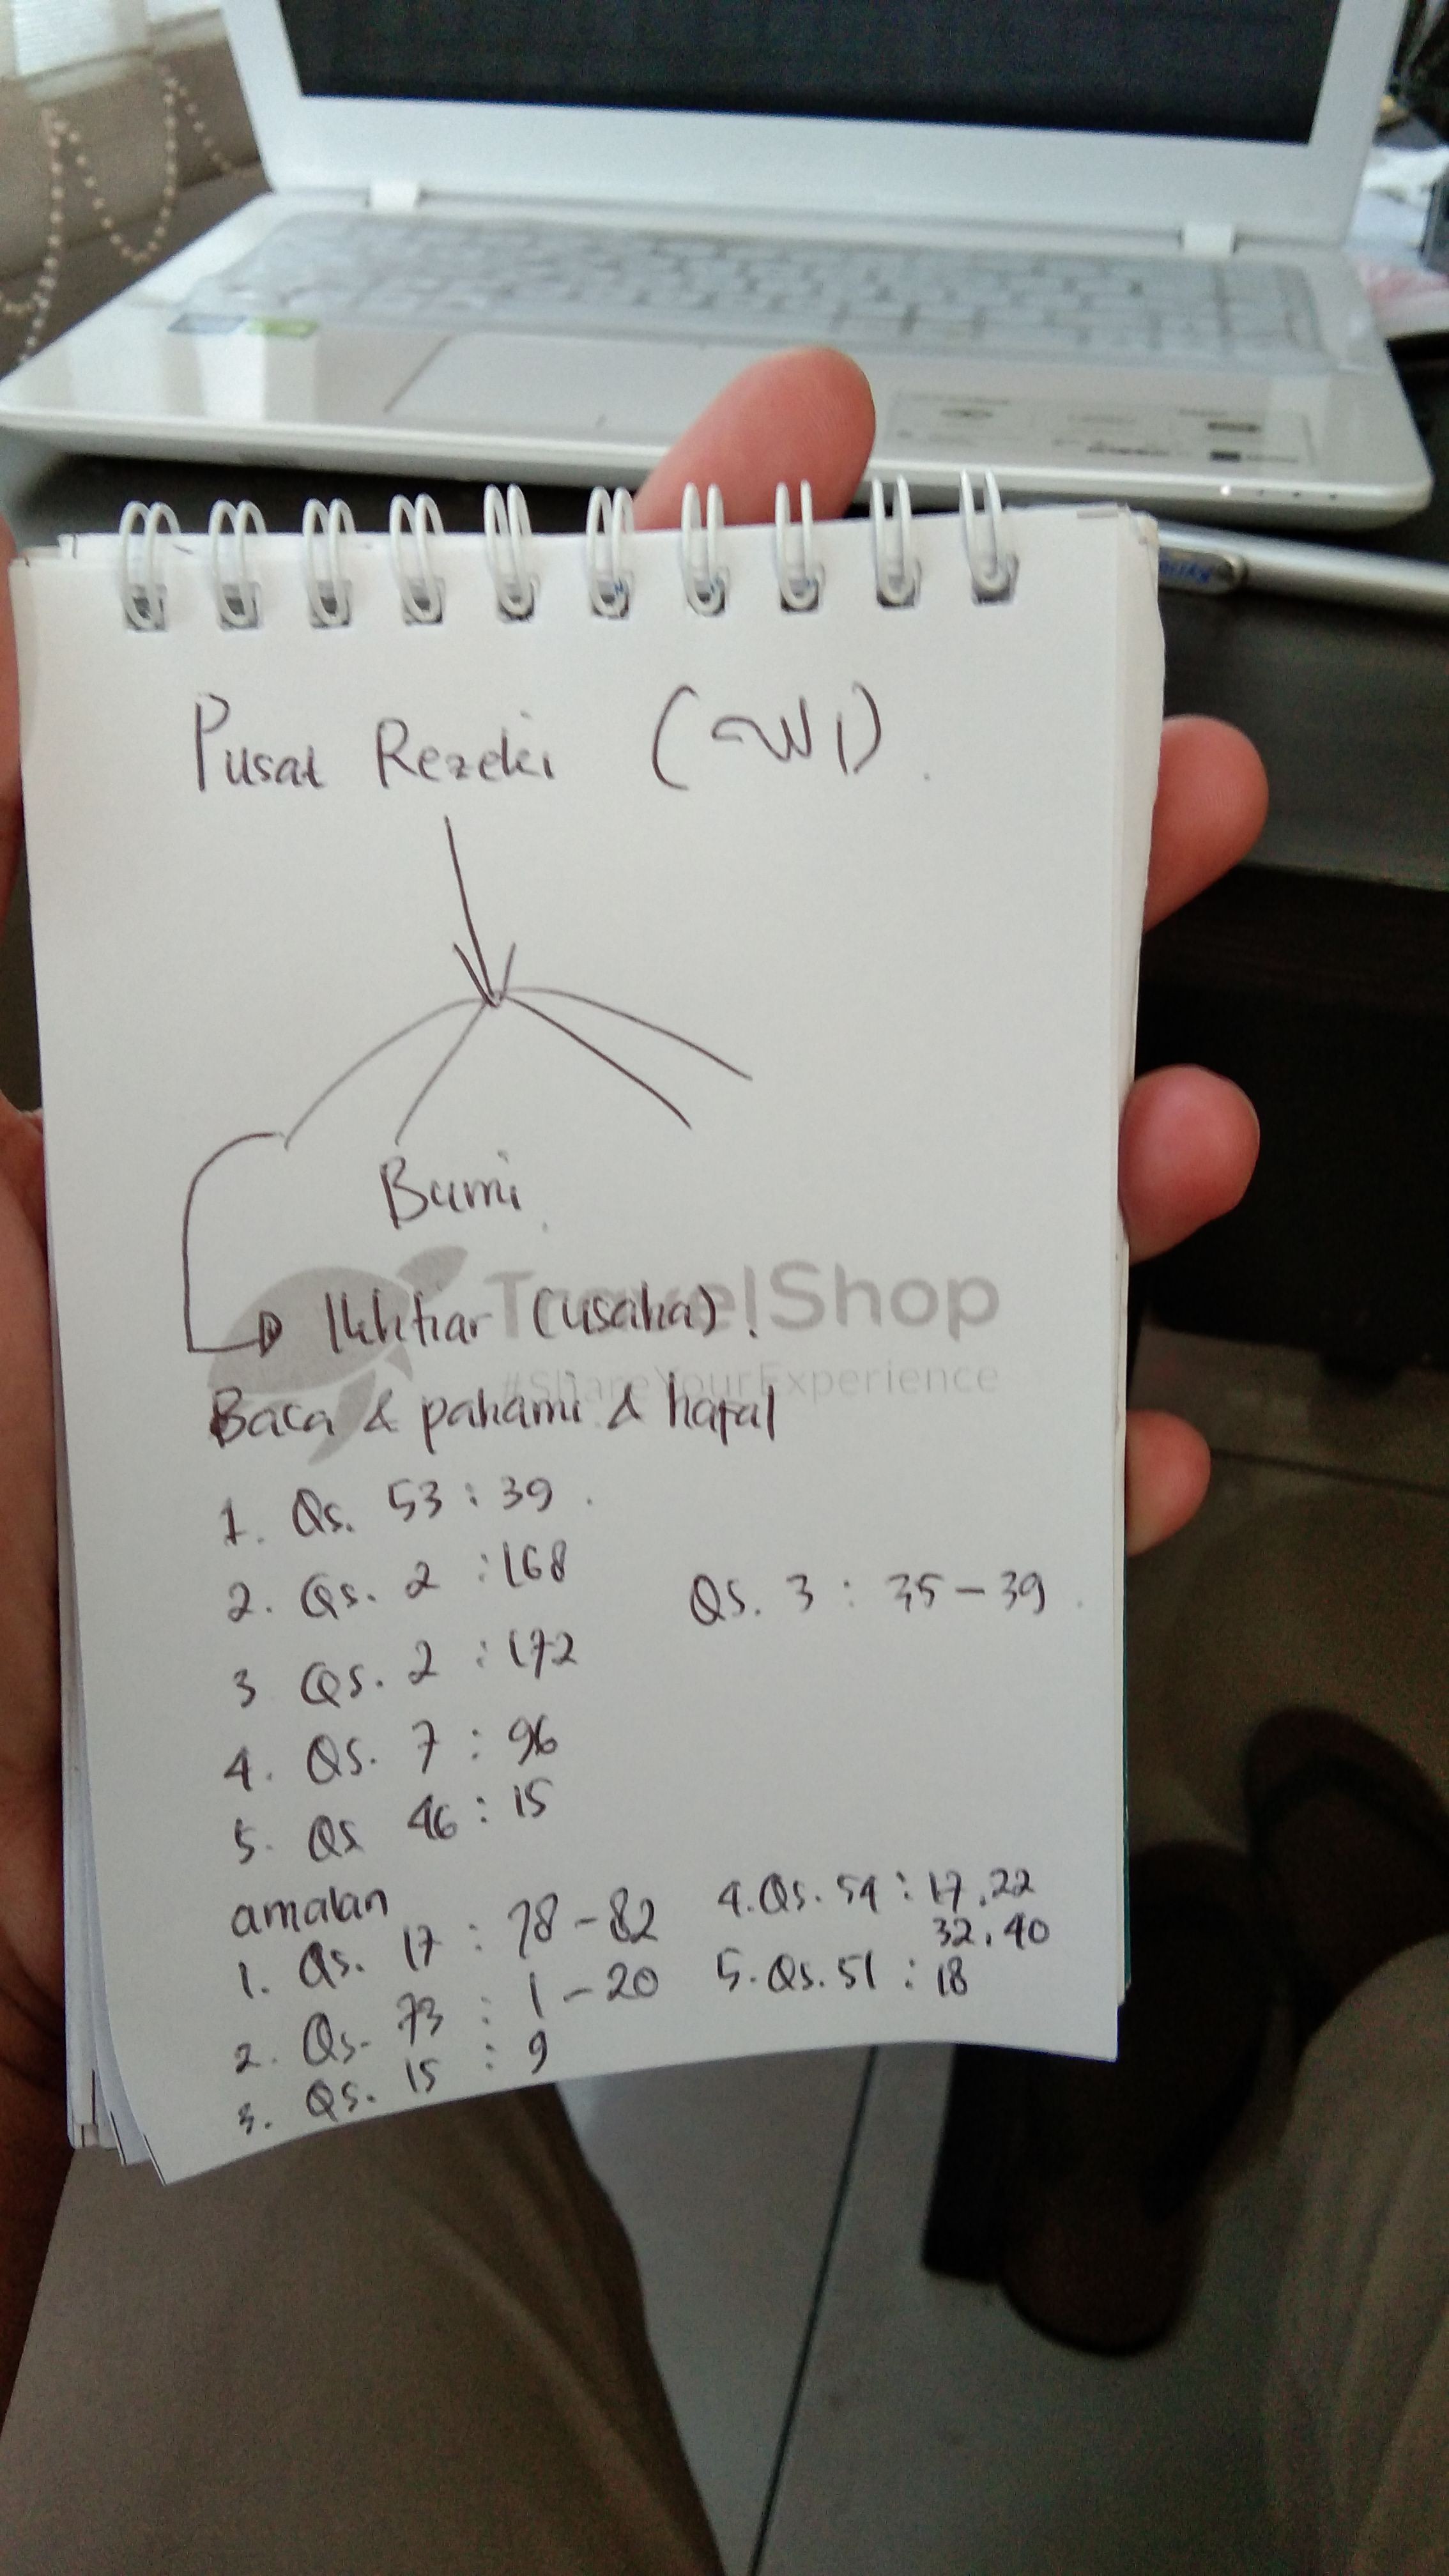 Pusat Rezeki
Bumi.
Ikhtiar (usaha).
TravelShop
#ShareYourExperience
Baca & pahami & hafal
1. Qs. 53 : 39.
2. Qs. 2 : 168
3 Qs. 2 : 172
4. Qs. 7 : 96
5. Qs 46 : 15
Qs. 3 : 35-39.
amalan
1. Qs. 17 : 78-82
2. Qs. 73 : 1-20
3. Qs. 15 : 9
4. Qs. 54 : 17.22
32.40
5. Qs. 51 : 18